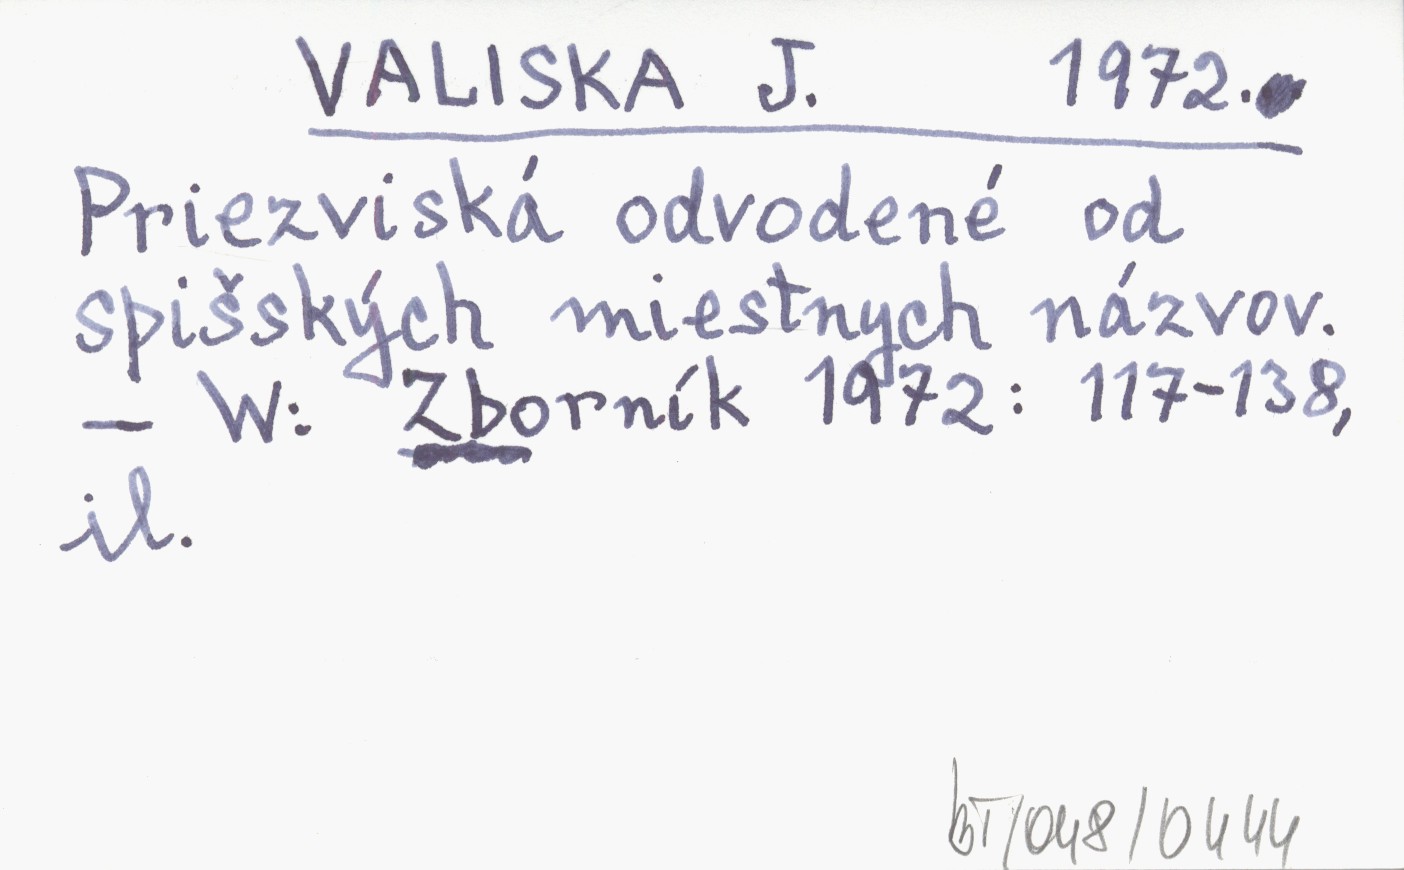 VALISKA J. 1972.
Priezviská odvodené od
spišských miestnych názvov.
— W: Zborník 1972: 117-138,
il.
bT/048/0444